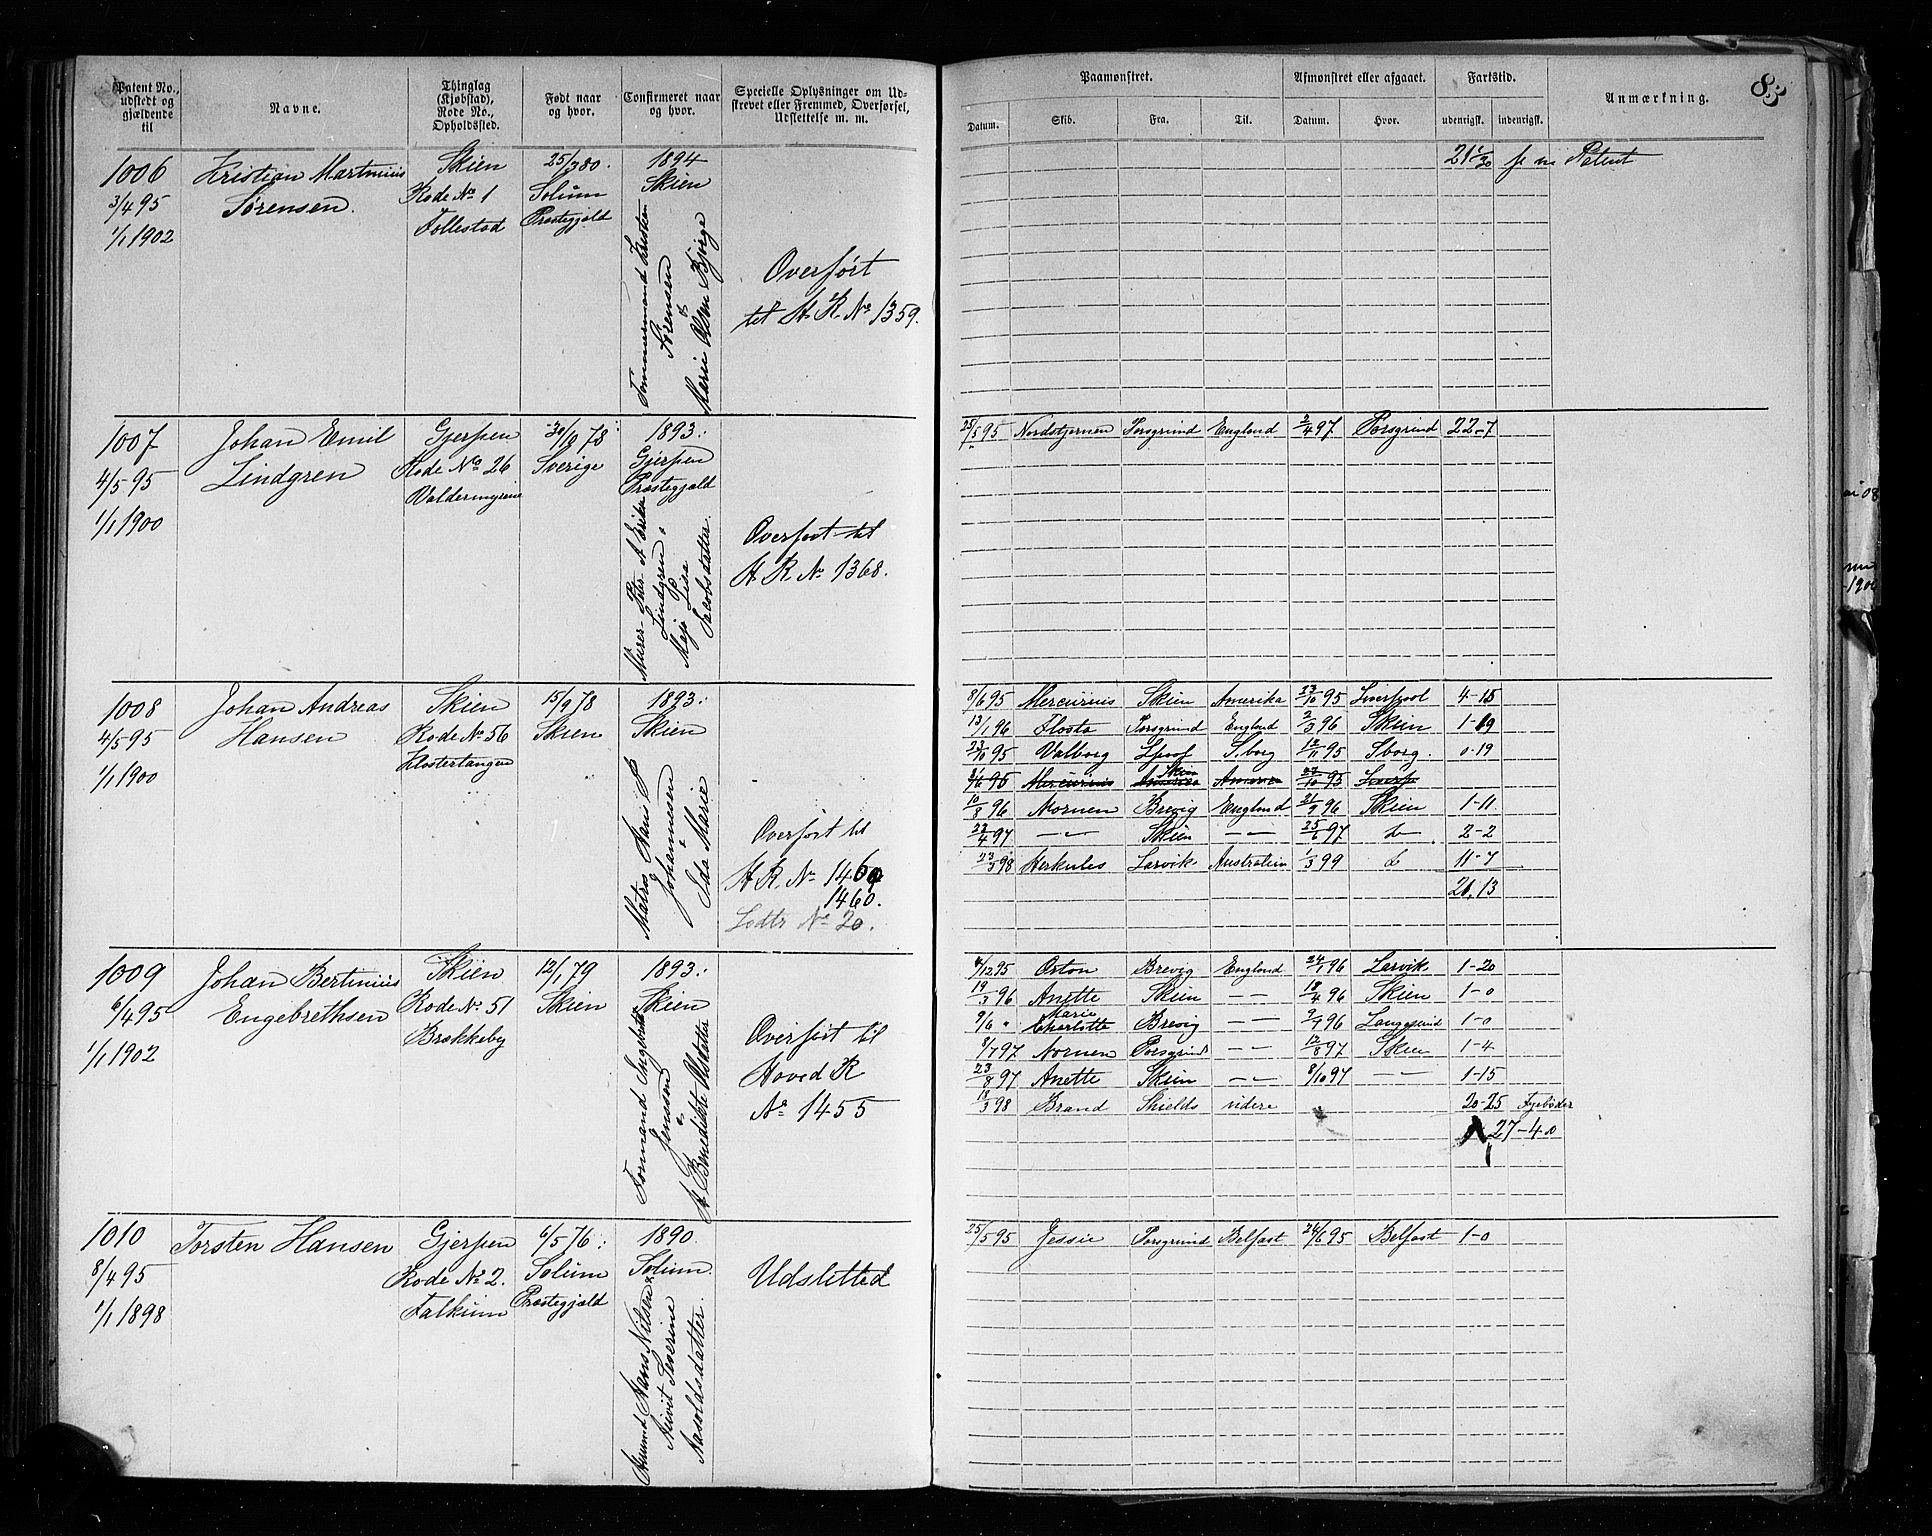 Patent No., udstedt og gjældende til
Navne.
Thinglag (Kjøbstad), Rode No., Opholdssted.
Født naar og hvor.
Confirmeret naar og hvor.
Specielle Oplysninger om Udskrevet eller Fremmed, Overførsel, Udslettelse m. m.
Paamønstret.
Afmønstret eller afgaaet.
Fartstid.
Anmærkning.
83
Datum. Skib. Fra. Til. Datum. Hvor. udenrigsk. indenrigsk.
1006
3/4 95
1/1 1902
Kristian Martinius
Sørensen.
Skien
Rode No 1
Follestad
25/7 80.
Solum
Præstegjæld
1894
Skien
Tømmermand Kristian
Sørensen
&
Maren Olsen Bjørge
Overført
til H. R. No 1359.
Patent
1007
4/5 95
1/1 1900
Johan Emil
Lindgren
Gjerpen
Rode No 26
Valdermyrene
30/9 78
Sverige
1893.
Gjerpen
Præstegjæld
Lindgren &
Maja Lisa
Jacobsdatter.
Overført til
H R No 1368.
25/5 95 Nordstjernen Porsgrund England 2/4 97 Porsgrund 22-7
1008
4/5 95
1/1 1900
Johan Andreas
Hansen
Skien
Rode No 56
Klostertangen
15/9 78
Skien
1893.
Skien
Matros Hans P
Johannesen
&
Ida Marie
Overført til
H R. No 1460
1460.
Lodtr No 20.
8/6 95 Mercurius Skien Amerika 23/10 95 Liverpool 4-15
13/1 96 Flosta Porsgrund England 2/3 96 Skien 1-19
23/10 95 Valborg Lpool Sborg 12/11 95 Sborg. 0-19
8/6 95 Mercurius Skien Amerika 22/10 95 Liverp
10/8 96 Nornen Brevig England 21/9 96 Skien 1-11
23/4 97 — Skien — 25/6 97 do 2-2
23/3 98 Herkules Larvik Australien 1/3 99 do 11-7
21,13
1009
6/4 95
1/1 1902
Johan Bertinius
Engebrethsen
Skien
Rode No 51
Brækkeby
12/1 79
Skien
1893.
Skien
Formand Ingebret
Jenssen
&
A Benedikte Olsdatter
Overført til
Hoved R
No 1455
4/12 95 Orion Brevig England 24/1 96 Larvik. 1-20
19/3 96 Anette Skien — 18/4 96 Skien 1-0
9/6 " Marie Charlotte Brevig — 9/7 96 Langesund 1-0
8/7 97 Nornen Porsgrund — 12/8 97 Skien 1-4
23/8 97 Anette Skien — 8/10 97 — 1-15
18/3 98 Brand Shields videre 20-25 Fyrbøder
27-4.0
1010
8/4 95
1/1 1898
Torsten Hansen
Gjerpen
Rode No 2.
Falkum
6/5 76.
Solum
Præstegjæld
1890.
Solum.
Husmd Hans Nilsen &
Severine
Aasoldsdatter.
Udslitted
25/5 95 Jessie Porsgrund Belfast 24/6 95 Belfast 1-0